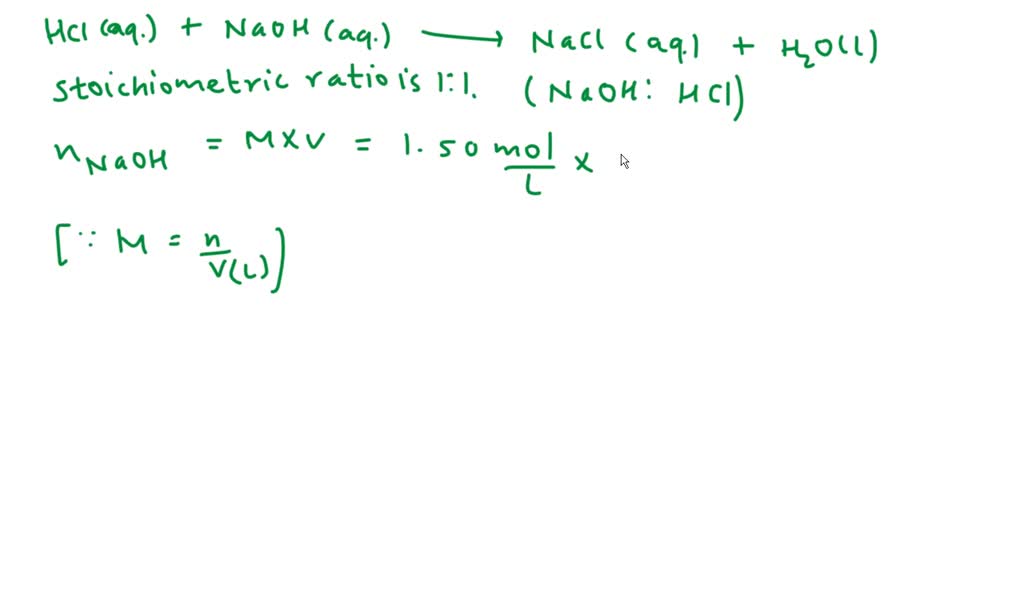 HCl (aq.) + NaOH (aq.) ⟶ NaCl (aq.) + H₂O(l)
stoichiometric ratio is 1:1. (NaOH: HCl)
n NaOH = M×V = 1.50 mol/L ×
[∵ M = n/V(L)]